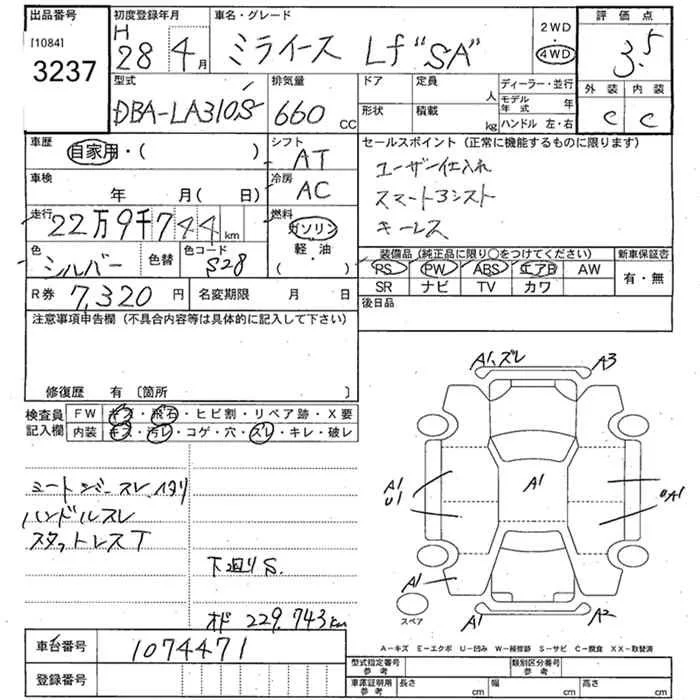 出品番号 初度登録年月 車名・グレード 評価点
[1084] H 28年 4月 ミライース Lf "SA" 2WD 4WD 3.5
3237 型式 排気量 ドア 定員 人 ディーラー・並行 外装 内装
DBA-LA310S 660 CC 形状 積載 kg モデル年式 年 ハンドル 左・右 C C
車歴 自家用・( ) シフト AT セールスポイント (正常に機能するものに限ります)
車検 年 月( 日) 冷房 AC ユーザー仕入れ
スマートアシスト
走行 22万9千744km 燃料 ガソリン キーレス
色 シルバー 色替 色コード S28 軽・油 ( )
装備品 (純正品に限り○をつけてください) 新車保証書
PS PW ABS エアB AW 有・無
R券 7,320円 名変期限 月 日 SR ナビ TV カワ
注意事項申告欄 (不具合内容等は具体的に記入して下さい) 後日品
修復歴 有 〔箇所 〕
A1,ズレ A3
検査員 FW キズ・飛石・ヒビ割・リペア跡・X要
記入欄 内装 キズ・汚レ・コゲ・穴・ズレ・キレ・破レ
A1 U1 A1 UA1
シートシワ・スレ、イタリ
ハンドルスレ
スタットレスT
下廻りS.
A1 A1 A2
オド 229,743km
スペア
車台番号 1074471
A-キズ E-エクボ U-凹み W-補修跡 S-サビ C-腐食 XX-取替済
登録番号
型式指定番号 参考 類別区分番号 参考
車庫証明用 参考 長さ cm 幅 cm 高さ cm